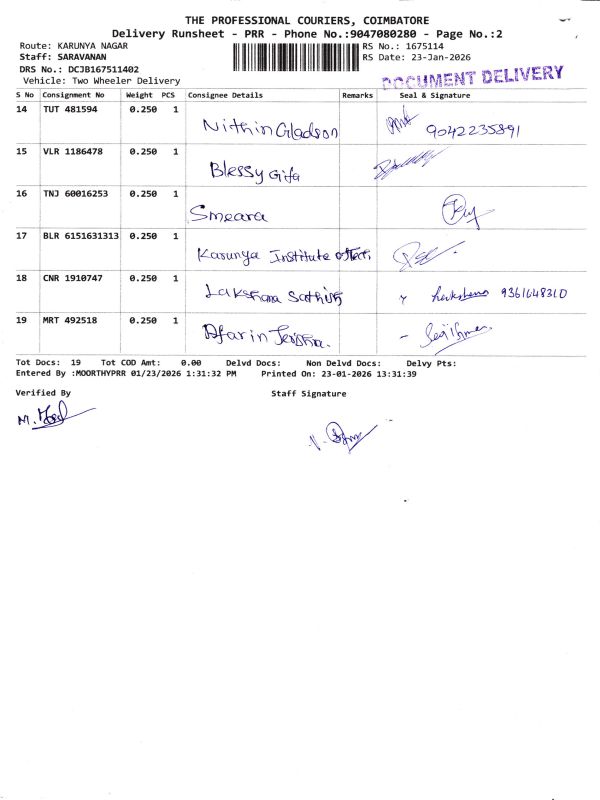 THE PROFESSIONAL COURIERS, COIMBATORE
Delivery Runsheet - PRR - Phone No.:9047080280 - Page No.:2
Route: KARUNYA NAGAR RS No.: 1675114
Staff: SARAVANAN RS Date: 23-Jan-2026
DRS No.: DCJB167511402
Vehicle: Two Wheeler Delivery
DOCUMENT DELIVERY
S No Consignment No Weight PCS Consignee Details Remarks Seal & Signature
14 TUT 481594 0.250 1 Nithin Gladson 9042235891
15 VLR 1186478 0.250 1 Blessy Gifa
16 TNJ 60016253 0.250 1 Smeara
17 BLR 6151631313 0.250 1 Karunya Institute of Tech
18 CNR 1910747 0.250 1 Lakshana Sathish 9361648310
19 MRT 492518 0.250 1 Afarin
Tot Docs: 19 Tot COD Amt: 0.00 Delvd Docs: Non Delvd Docs: Delvy Pts:
Entered By :MOORTHYPRR 01/23/2026 1:31:32 PM Printed On: 23-01-2026 13:31:39
Verified By Staff Signature